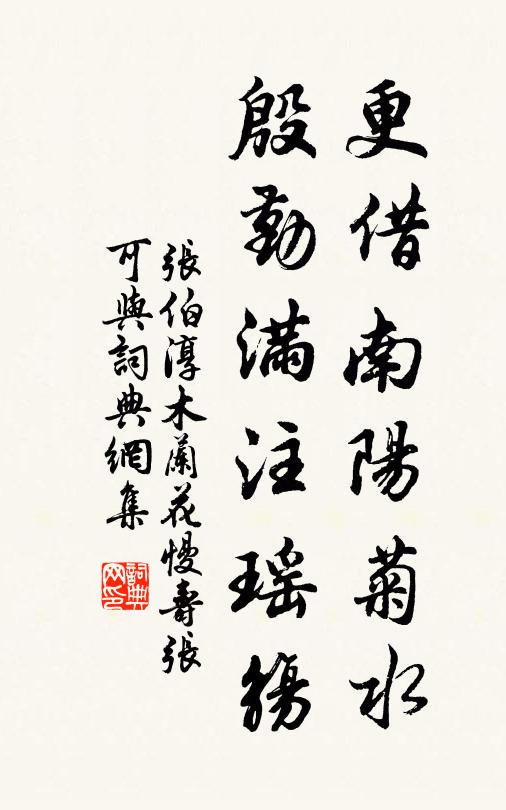 更借南陽菊水
殷勤滿注瑤觴
張伯淳木蘭花慢壽張
可與詞典網集
詞典網印